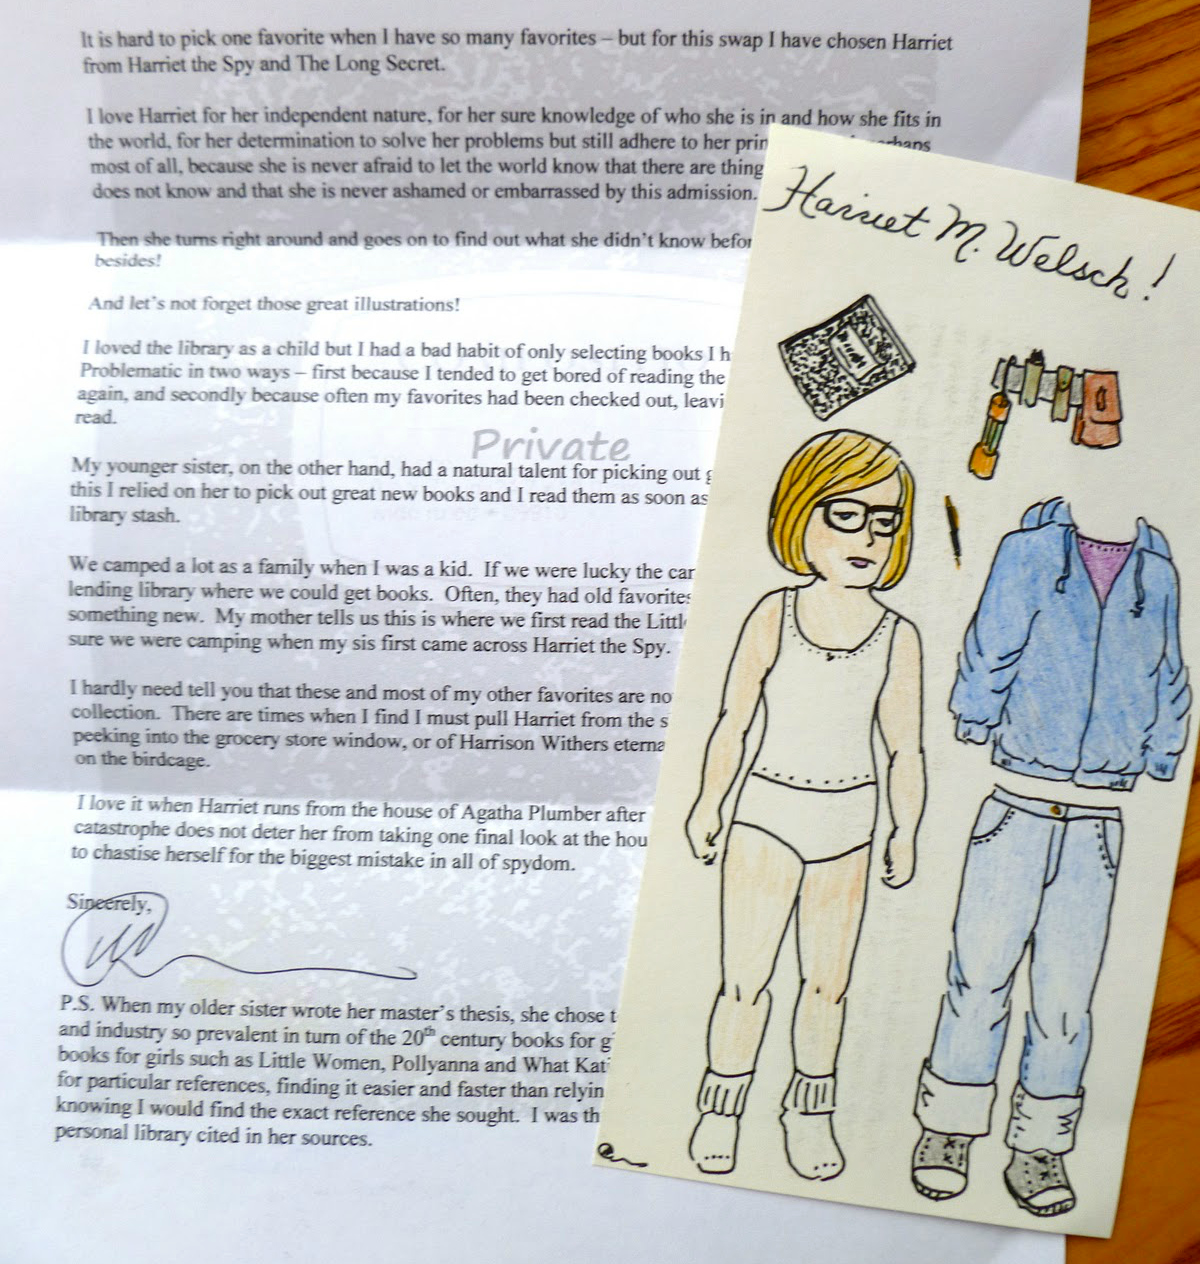 It is hard to pick one favorite when I have so many favorites – but for this swap I have chosen Harriet
from Harriet the Spy and The Long Secret.
I love Harriet for her independent nature, for her sure knowledge of who she is in and how she fits in
the world, for her determination to solve her problems but still adhere to her prin
most of all, because she is never afraid to let the world know that there are thing
does not know and that she is never ashamed or embarrassed by this admission.
Then she turns right around and goes on to find out what she didn't know befor
besides!
And let's not forget those great illustrations!
I loved the library as a child but I had a bad habit of only selecting books I h
Problematic in two ways – first because I tended to get bored of reading the
again, and secondly because often my favorites had been checked out, leavi
read.
Private
My younger sister, on the other hand, had a natural talent for picking out g
this I relied on her to pick out great new books and I read them as soon as
library stash.
We camped a lot as a family when I was a kid. If we were lucky the car
lending library where we could get books. Often, they had old favorites
something new. My mother tells us this is where we first read the Littl
sure we were camping when my sis first came across Harriet the Spy.
I hardly need tell you that these and most of my other favorites are no
collection. There are times when I find I must pull Harriet from the s
peeking into the grocery store window, or of Harrison Withers eterna
on the birdcage.
I love it when Harriet runs from the house of Agatha Plumber after
catastrophe does not deter her from taking one final look at the hou
to chastise herself for the biggest mistake in all of spydom.
Sincerely,
P.S. When my older sister wrote her master's thesis, she chose t
and industry so prevalent in turn of the 20th century books for g
books for girls such as Little Women, Pollyanna and What Kat
for particular references, finding it easier and faster than relyin
knowing I would find the exact reference she sought. I was th
personal library cited in her sources.
Harriet M. Welsch!